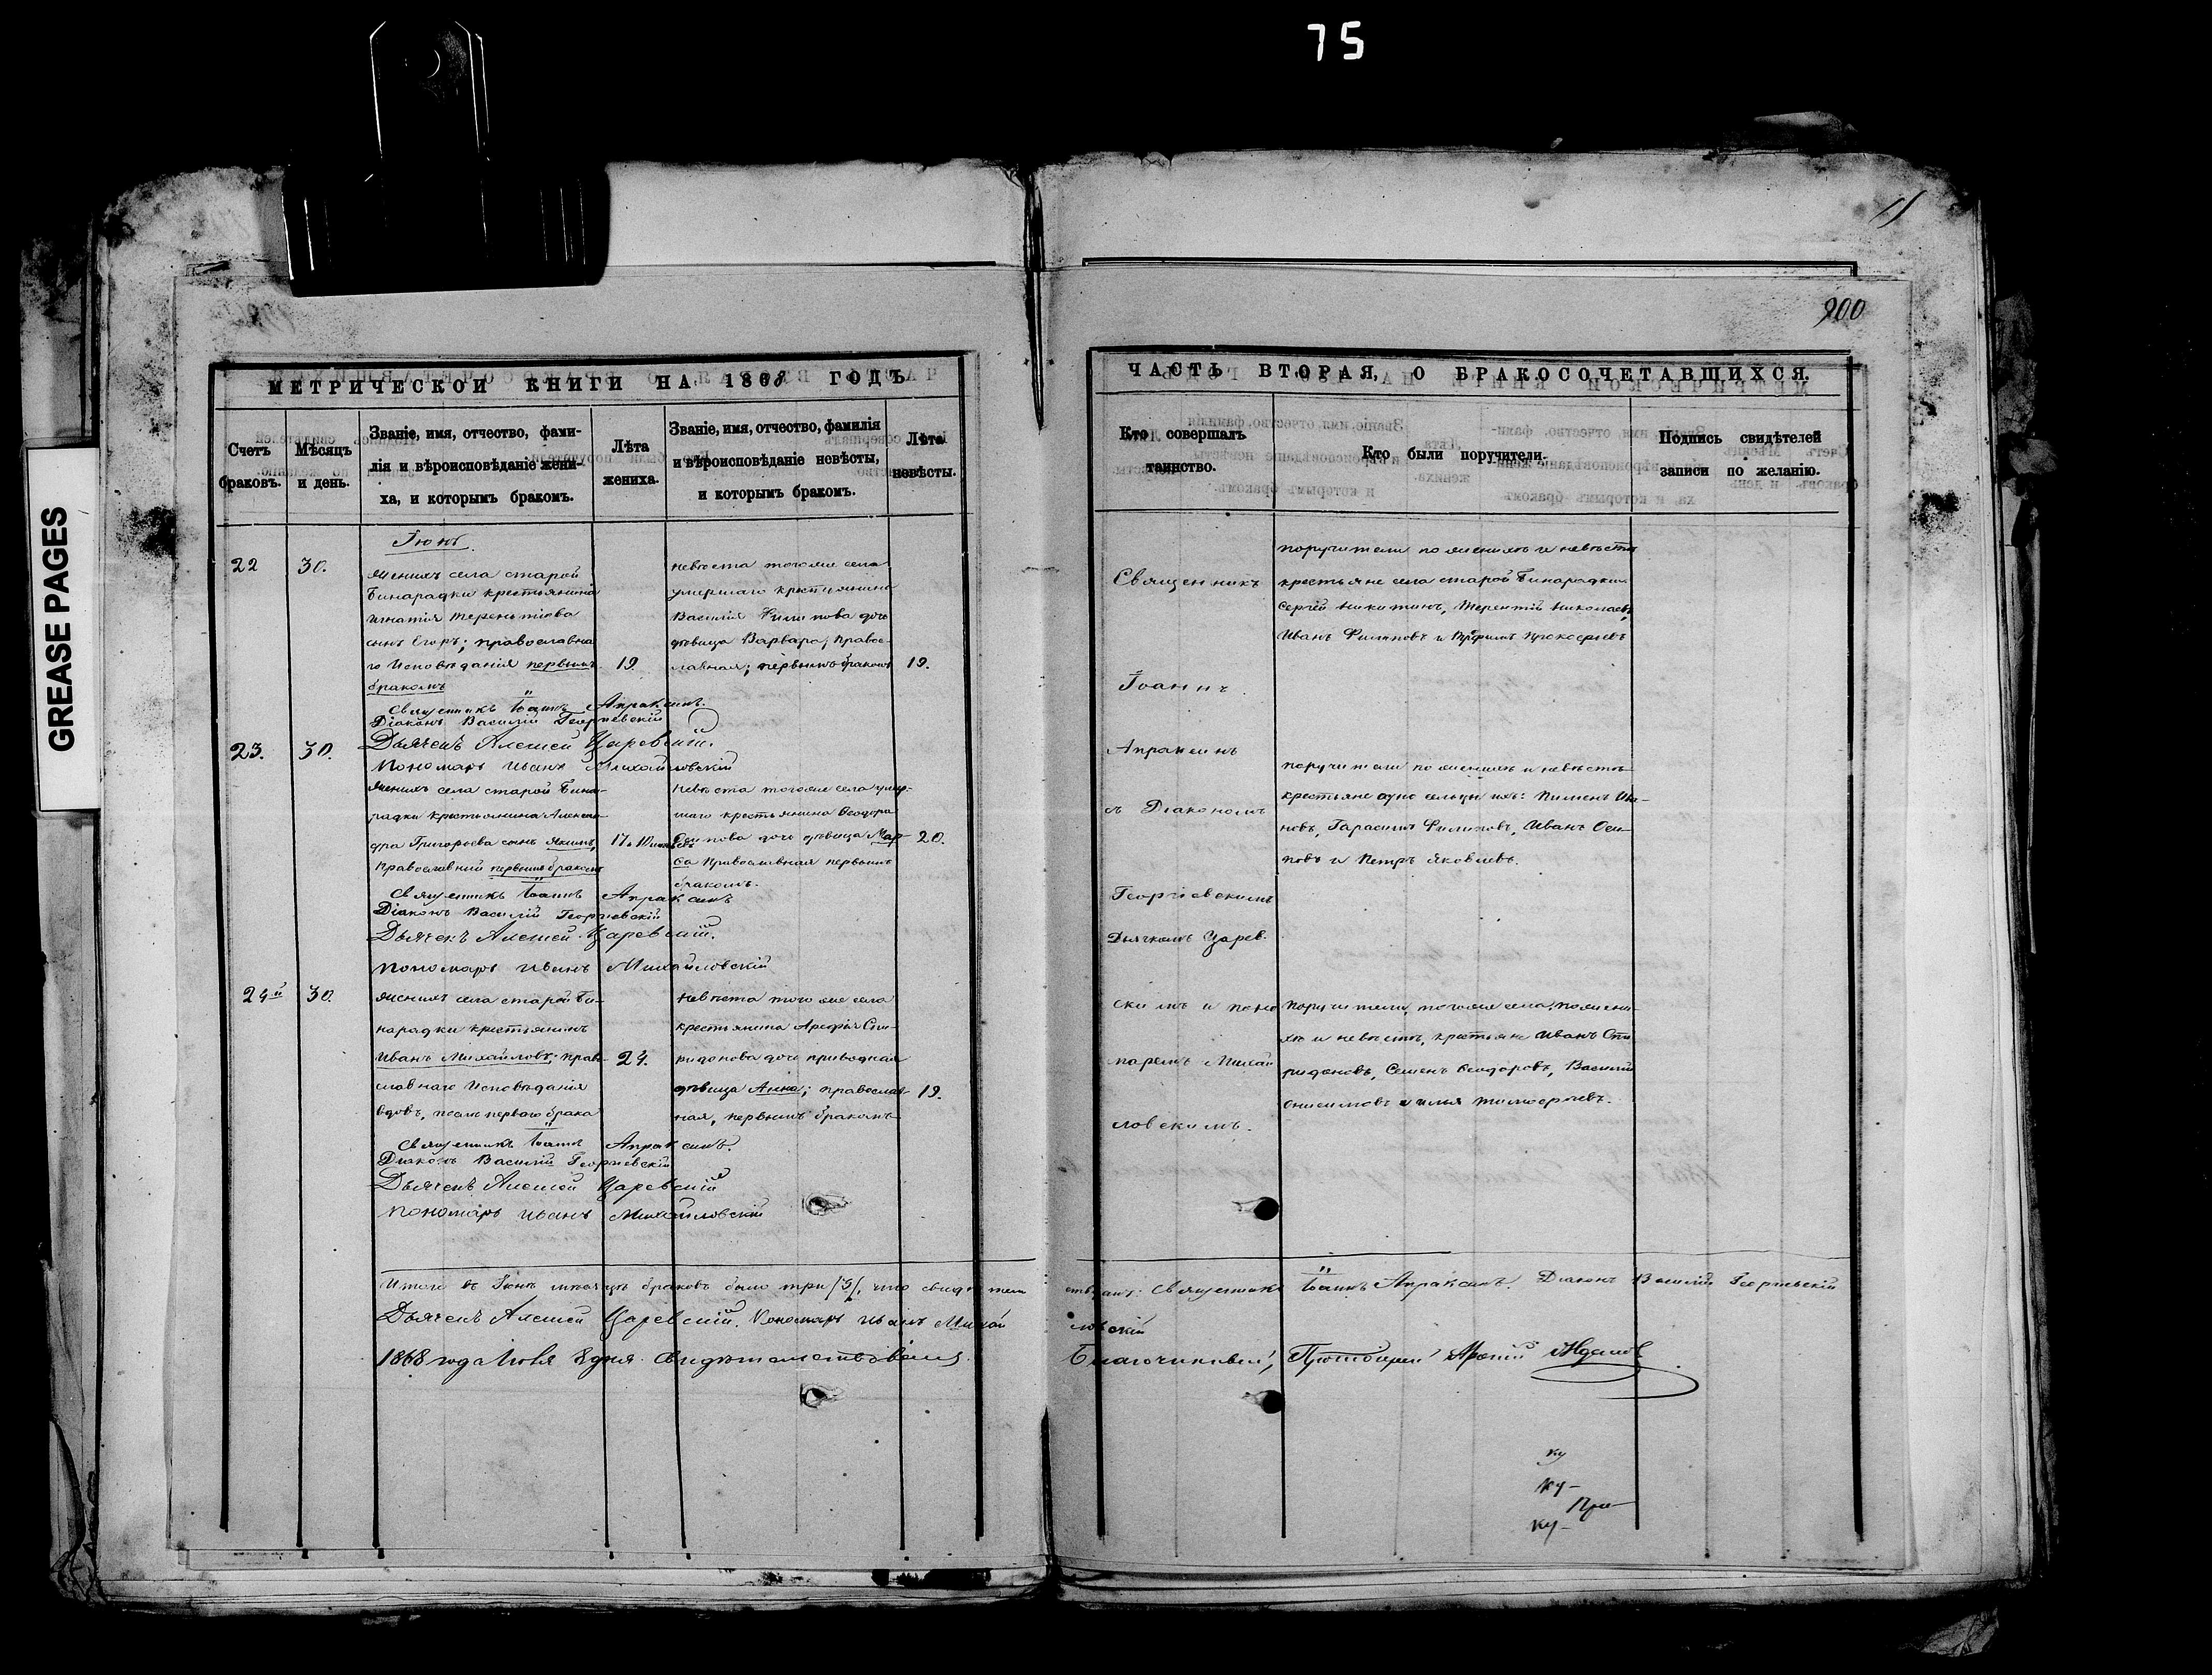 75
GREASE PAGES
11
200
МЕТРИЧЕСКОЙ КНИГИ НА 1868 ГОДЪ
Счетъ браковъ.
Мѣсяцъ и день.
Званіе, имя, отчество, фами-
лія и вѣроисповѣданіе жени-
ха, и которымъ бракомъ.
Лѣта жениха.
Званіе, имя, отчество, фамилія
и вѣроисповѣданіе невѣсты,
и которымъ бракомъ.
Лѣта невѣсты.
Іюнь.
22
30.
Женихъ села старой
Бинарадки крестьянина
Игнатія Терентіева
сынъ Егоръ; православна
го Исповѣданія первымъ
бракомъ
19.
невѣста тогоже села
умершаго крестьянина
Василія Филипова дочь
дѣвица Варвара; право-
славная; первымъ бракомъ
19.
Священникъ Іоаннъ Апраксинъ.
Діаконъ Василій Георгіевскій
Дьячекъ Алексей Царевскій.
Пономарь Иванъ Михайловскій
23.
30.
Женихъ села старой Бина-
радки крестьянина Алексан-
дра Григорьева сынъ Якимъ,
Православный первымъ бракомъ
невѣста тогоже села умер-
шаго крестьянина Ѳеодора
Осипова дочь дѣвица Мар-
Православная первымъ
бракомъ.
20.
Священникъ Іоаннъ Апраксинъ
Діаконъ Василій Георгіевскій
Дьячекъ Алексей Царевскій.
Пономарь Иванъ Михайловскій
24й
30.
женихъ села старой Би-
нарадки крестьянинъ
Иванъ Михайловъ; право-
славнаго Исповѣданія
вдовъ, послѣ перваго брака
24.
невѣста того же села
крестьянина Арефія Спи-
ридонова дочь приводная
дѣвица Анна; православ-
ная, первымъ бракомъ
19.
Священникъ Іоаннъ Апраксинъ.
Діаконъ Василій Георгіевскій
Дьячекъ Алексей Царевскій
Пономарь Иванъ Михайловскій
Итого въ Іюнѣ мѣсяцѣ браковъ было три /3/, что свидѣтель
Дьячекъ Алексей Царевскій. Пономарь Иванъ Михай
1868 года Іюля 8 дня. Свидѣтельствовалъ
ЧАСТЬ ВТОРАЯ, О БРАКОСОЧЕТАВШИХСЯ.
Кто совершалъ таинство.
Кто были поручители.
Подпись свидѣтелей записи по желанію.
Священникъ
Іоаннъ
Апраксинъ
съ Діакономъ
Георгіевскимъ
Дьячкомъ Царев.
скимъ и поно
маремъ Михай
ловскимъ.
поручители по женихѣ и невѣстѣ
крестьяне села старой Бинарадки
Сергій Никитинъ, Терентій Николаевъ,
Иванъ Филиповъ и Прокофіевъ
поручители по женихѣ и невѣстѣ
крестьяне односельцы ихъ: Пименъ Ива-
новъ, Гарасимъ Филиповъ, Иванъ Оси-
повъ и Петръ Яковлевъ.
Поручители, тогоже села, по жени-
хѣ и невѣстѣ, крестьяне Иванъ Спи-
ридоновъ, Семенъ Ѳеодоровъ, Василій
Онисимовъ и Илья Тимофѣевъ.
ствуютъ: Священникъ Іоаннъ Апраксинъ. Діаконъ Василій Георгіевскій
ловскій
Благочинный, Протоіерей
ку
ку-
При-
ку-